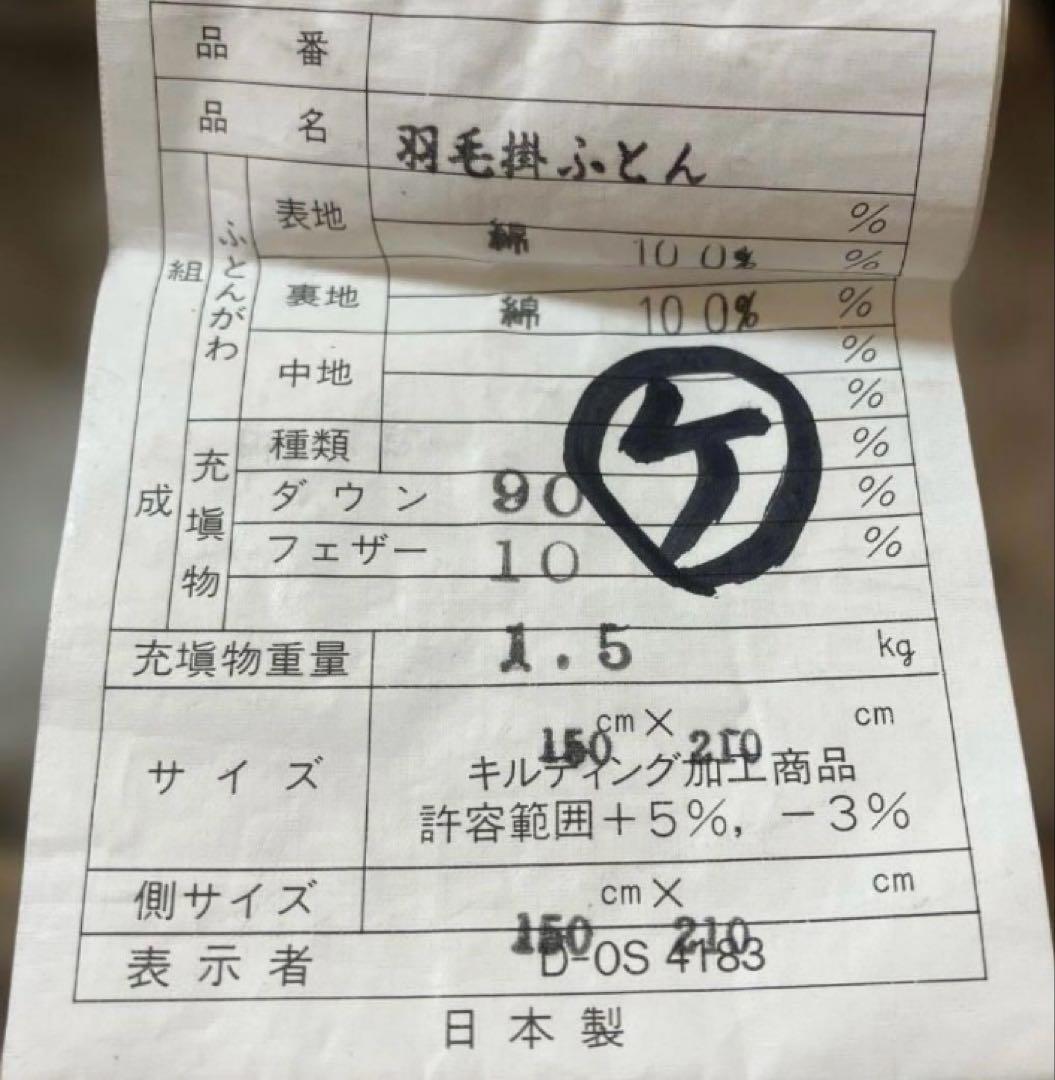 品番
品名 羽毛掛ふとん
組成
ふとんがわ
表地 %
綿 100% %
裏地 綿 100% %
中地 %
%
充塡物
種類 %
ダウン 90 %
フェザー 10 %
ケ
充塡物重量 1.5 kg
サイズ 150 cm × 210 cm
キルティング加工商品
許容範囲+5%, -3%
側サイズ 150 cm × 210 cm
表示者 D-OS 4183
日本製